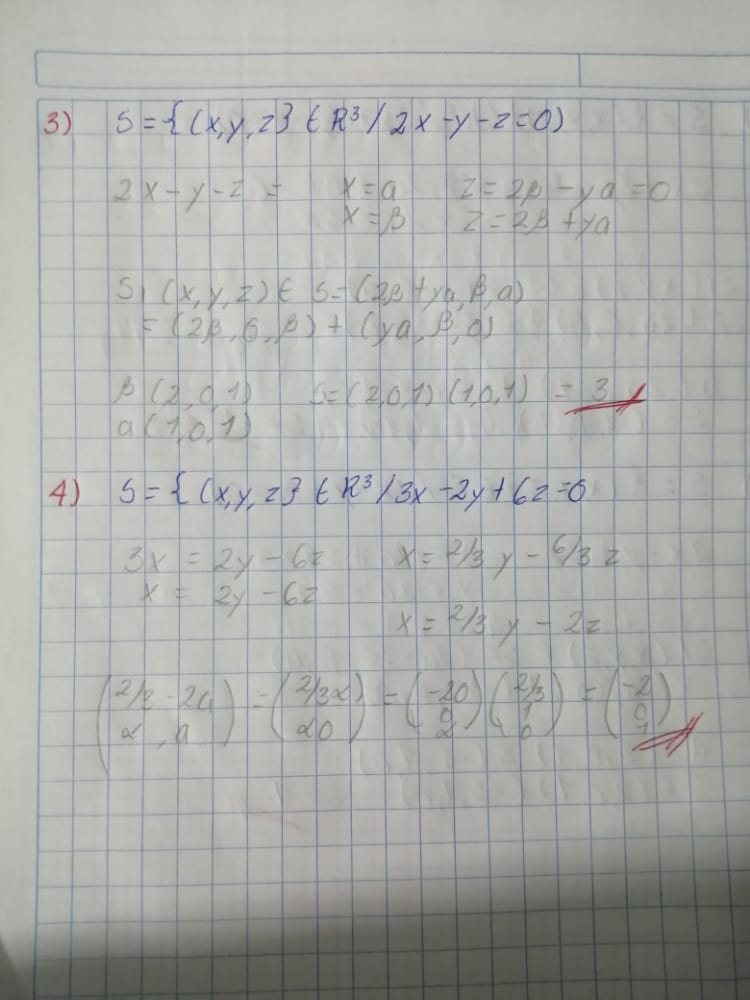 3) S={(x,y,z} ∈ R³ / 2x-y-z=0)
2x-y-z = x=a z=2β-ya=0
x=β z=2β+ya
S, (x,y,z) ∈ S=(2β+ya,β,a)
=(2β,6,β)+(ya,β,a)
β(2,0,1) S=(2,0,1)(1,0,1) = 3
a(1,0,1)
4) S={(x,y,z} ∈ R³ / 3x-2y+6z=0
3x = 2y-6z x=2/3 y - 6/3 z
x = 2y-6z
x=2/3 y - 2z
(2/3-2a) = (2/3α) = (-20) (2/3) = (-2)
(α,a) (α0) (0) (1) (0)
(2) (0) (1)